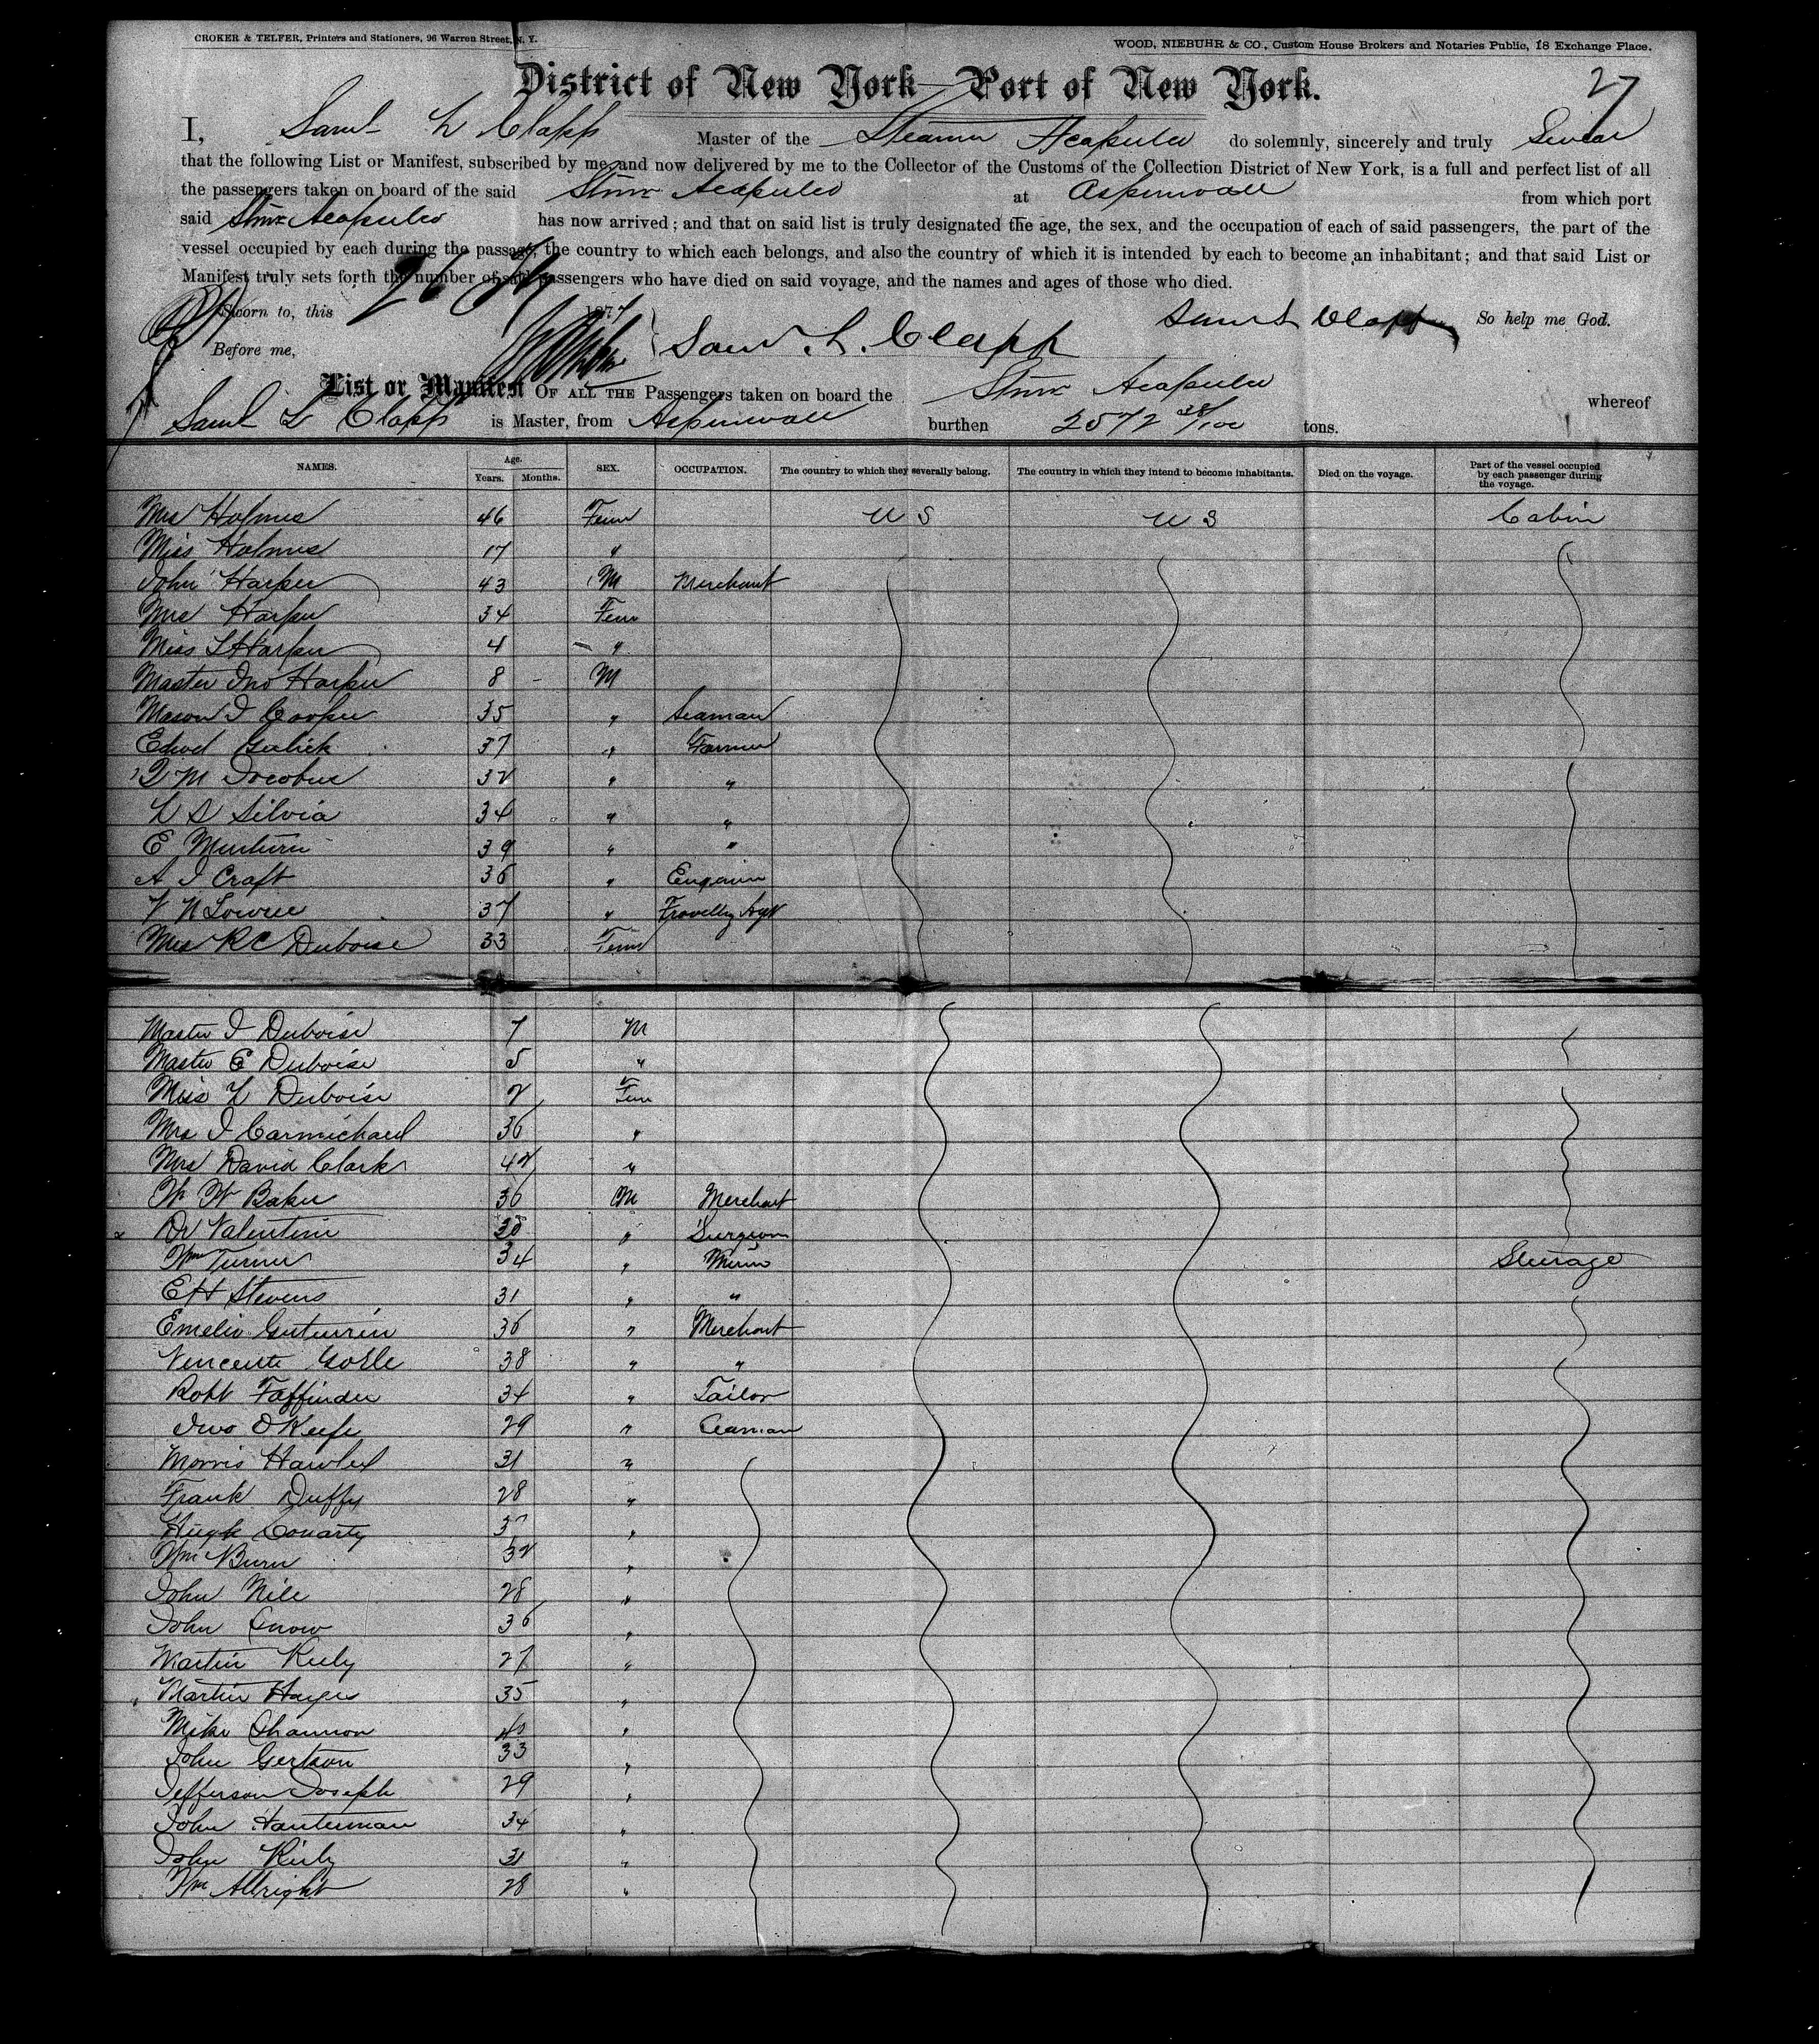 CROKER & TELFER, Printers and Stationers, 96 Warren Street, N. Y.
WOOD, NIEBUHR & CO., Custom House Brokers and Notaries Public, 18 Exchange Place.
District of New York—Port of New York.
27
I, Saml L Clapp Master of the Steamer Acapulco do solemnly, sincerely and truly Swear
that the following List or Manifest, subscribed by me, and now delivered by me to the Collector of the Customs of the Collection District of New York, is a full and perfect list of all
the passengers taken on board of the said Stmr Acapulco at Aspinwall from which port
said Stmr Acapulco has now arrived; and that on said list is truly designated the age, the sex, and the occupation of each of said passengers, the part of the
vessel occupied by each during the passage, the country to which each belongs, and also the country of which it is intended by each to become an inhabitant; and that said List or
Manifest truly sets forth the number of said passengers who have died on said voyage, and the names and ages of those who died.
Sworn to, this 26 1877 Saml L Clapp So help me God.
Before me, Saml L. Clapp
List or Manifest OF ALL THE Passengers taken on board the Stmr Acapulco whereof
Saml L Clapp is Master, from Aspinwall burthen 2572 38/100 tons.
NAMES. Age. Years. Months. SEX. OCCUPATION. The country to which they severally belong. The country in which they intend to become inhabitants. Died on the voyage. Part of the vessel occupied by each passenger during the voyage.
Mrs Holmes 46 Fem U S U S Cabin
Miss Holmes 17 "
John Harper 43 M Merchant
Mrs Harper 34 Fem
Miss L Harper 4 "
Master Jno Harper 8 M
Mason J Cooper 35 " Seaman
Edwd Gulick 37 " Farmer
M Jacobus 32 " "
L S Silvia 34 " "
E Minturn 39 " "
A J Craft 36 " Engineer
V N Lowrie 37 " Travellg Agt
Mrs R C Duboise 33 Fem
Master J Duboise 7 M
Master E Duboise 5 "
Miss L Duboise 2 Fem
Mrs J Carmichael 36 "
Mrs David Clark 42 "
W W Baker 36 M Merchant
Dr Valentine 30 " Surgeon
Wm Turner 34 " Miner Steerage
E H Stevens 31 " "
Emelio 36 " Merchant
Vincente 38 " "
Robt Taffinder 34 " Tailor
Jno O'Keefe 29 " Seaman
Morris 31 "
Frank Duffy 28 "
Hugh Conarty "
Wm Burn 32 "
John Nile 28 "
John Snow 36 "
Martin Kiely 27 "
Martin Hayes 35 "
Mike Shannon 40 "
John Gertson 33 "
Jefferson Joseph 29 "
John Hanterman 34 "
John Kiely 31 "
Wm Albright 28 "